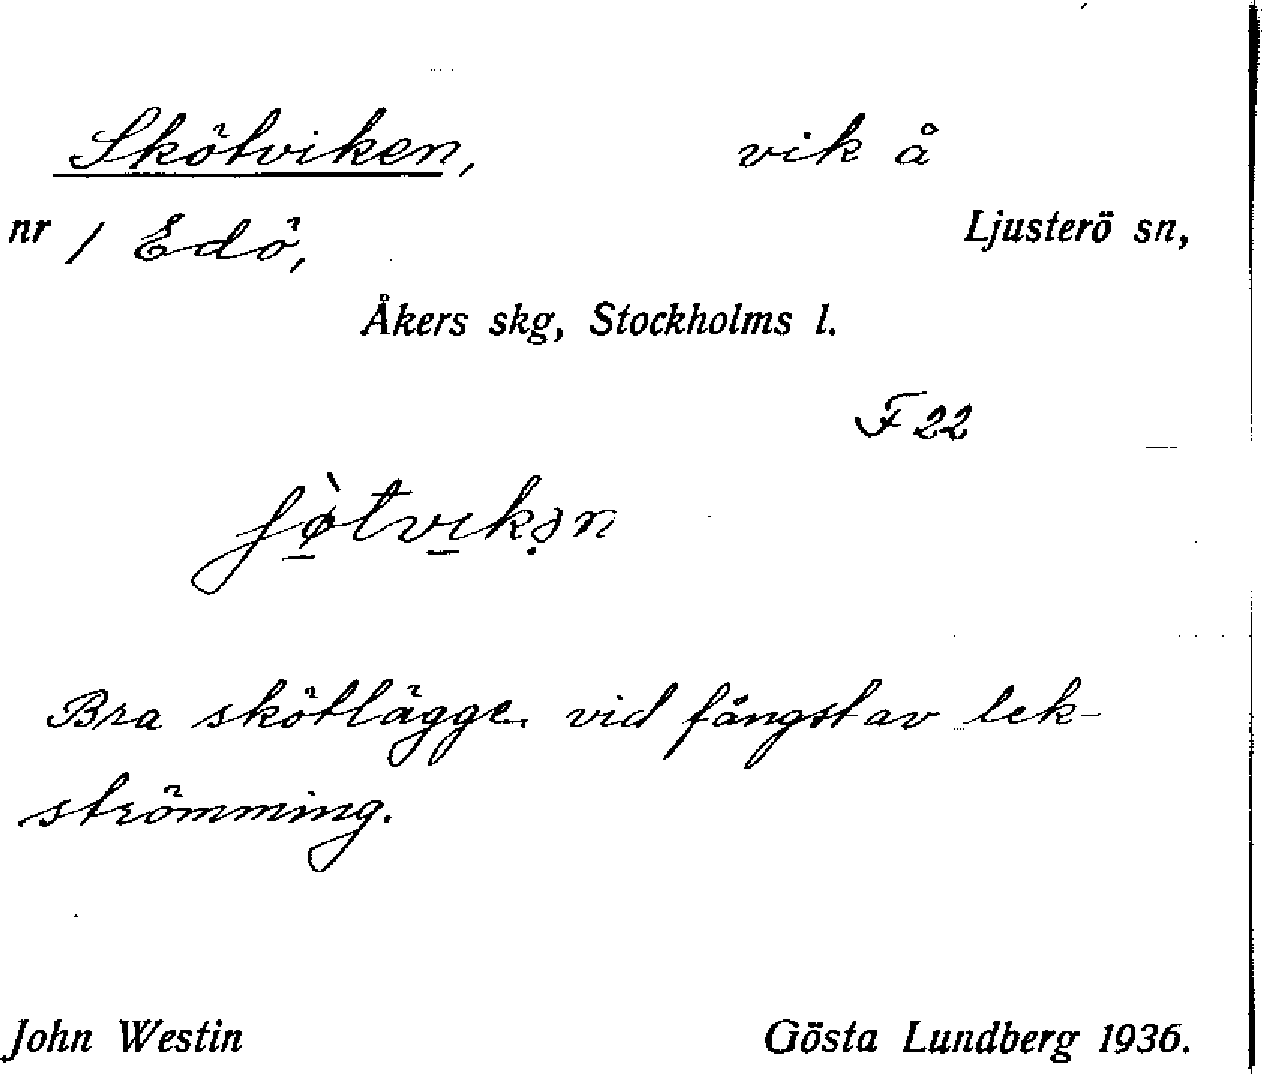 Skötviken, vik å
nr 1 Edö, Ljusterö sn,
Åkers skg, Stockholms l.
F 22
ʃø̀tvikən
Bra skötlägge vid fångst av lek-
strömming.
John Westin Gösta Lundberg 1936.